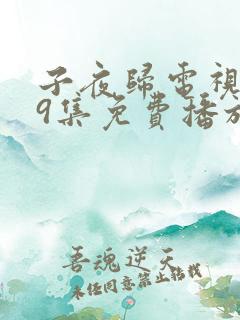 子夜歸電視
9集免費播放
吾魂逆天
未任同意禁止轉載